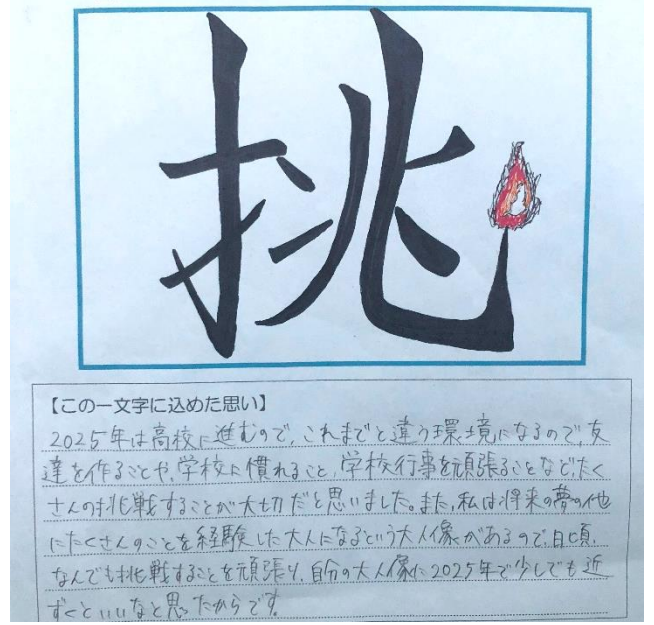 挑
【この一文字に込めた思い】
2025年は高校に進むので、これまでと違う環境になるので、友
達を作ることや、学校に慣れること、学校行事を頑張ることなどたく
さんの挑戦することが大切だと思いました。また、私は将来の夢の他
にたくさんのことを経験した大人になるという大人像があるので、日頃、
なんでも挑戦することを頑張り、自分の大人像に2025年で少しでも近
ずくといいなと思ったからです。